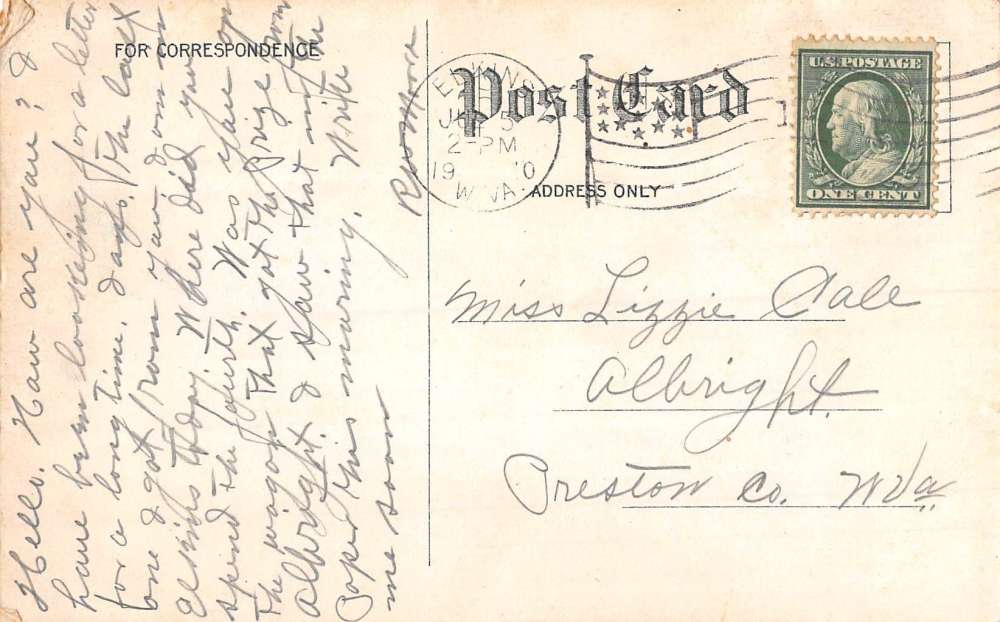 FOR CORRESPONDENCE
Post Card
ADDRESS ONLY
ELKINS
2-PM
19 0
W.VA
U.S. POSTAGE
ONE CENT
Hello. How are you? I
have been looking for a letter
for a long time. days. The last
one I got from you I am in
Elkins today. Where did you
spend the fourth. Was you on
the wagon that got the prize from
Albright. I saw that in the
Paper this morning. Write
me soon
Miss Lizzie Cale
Albright.
Preston Co. W Va